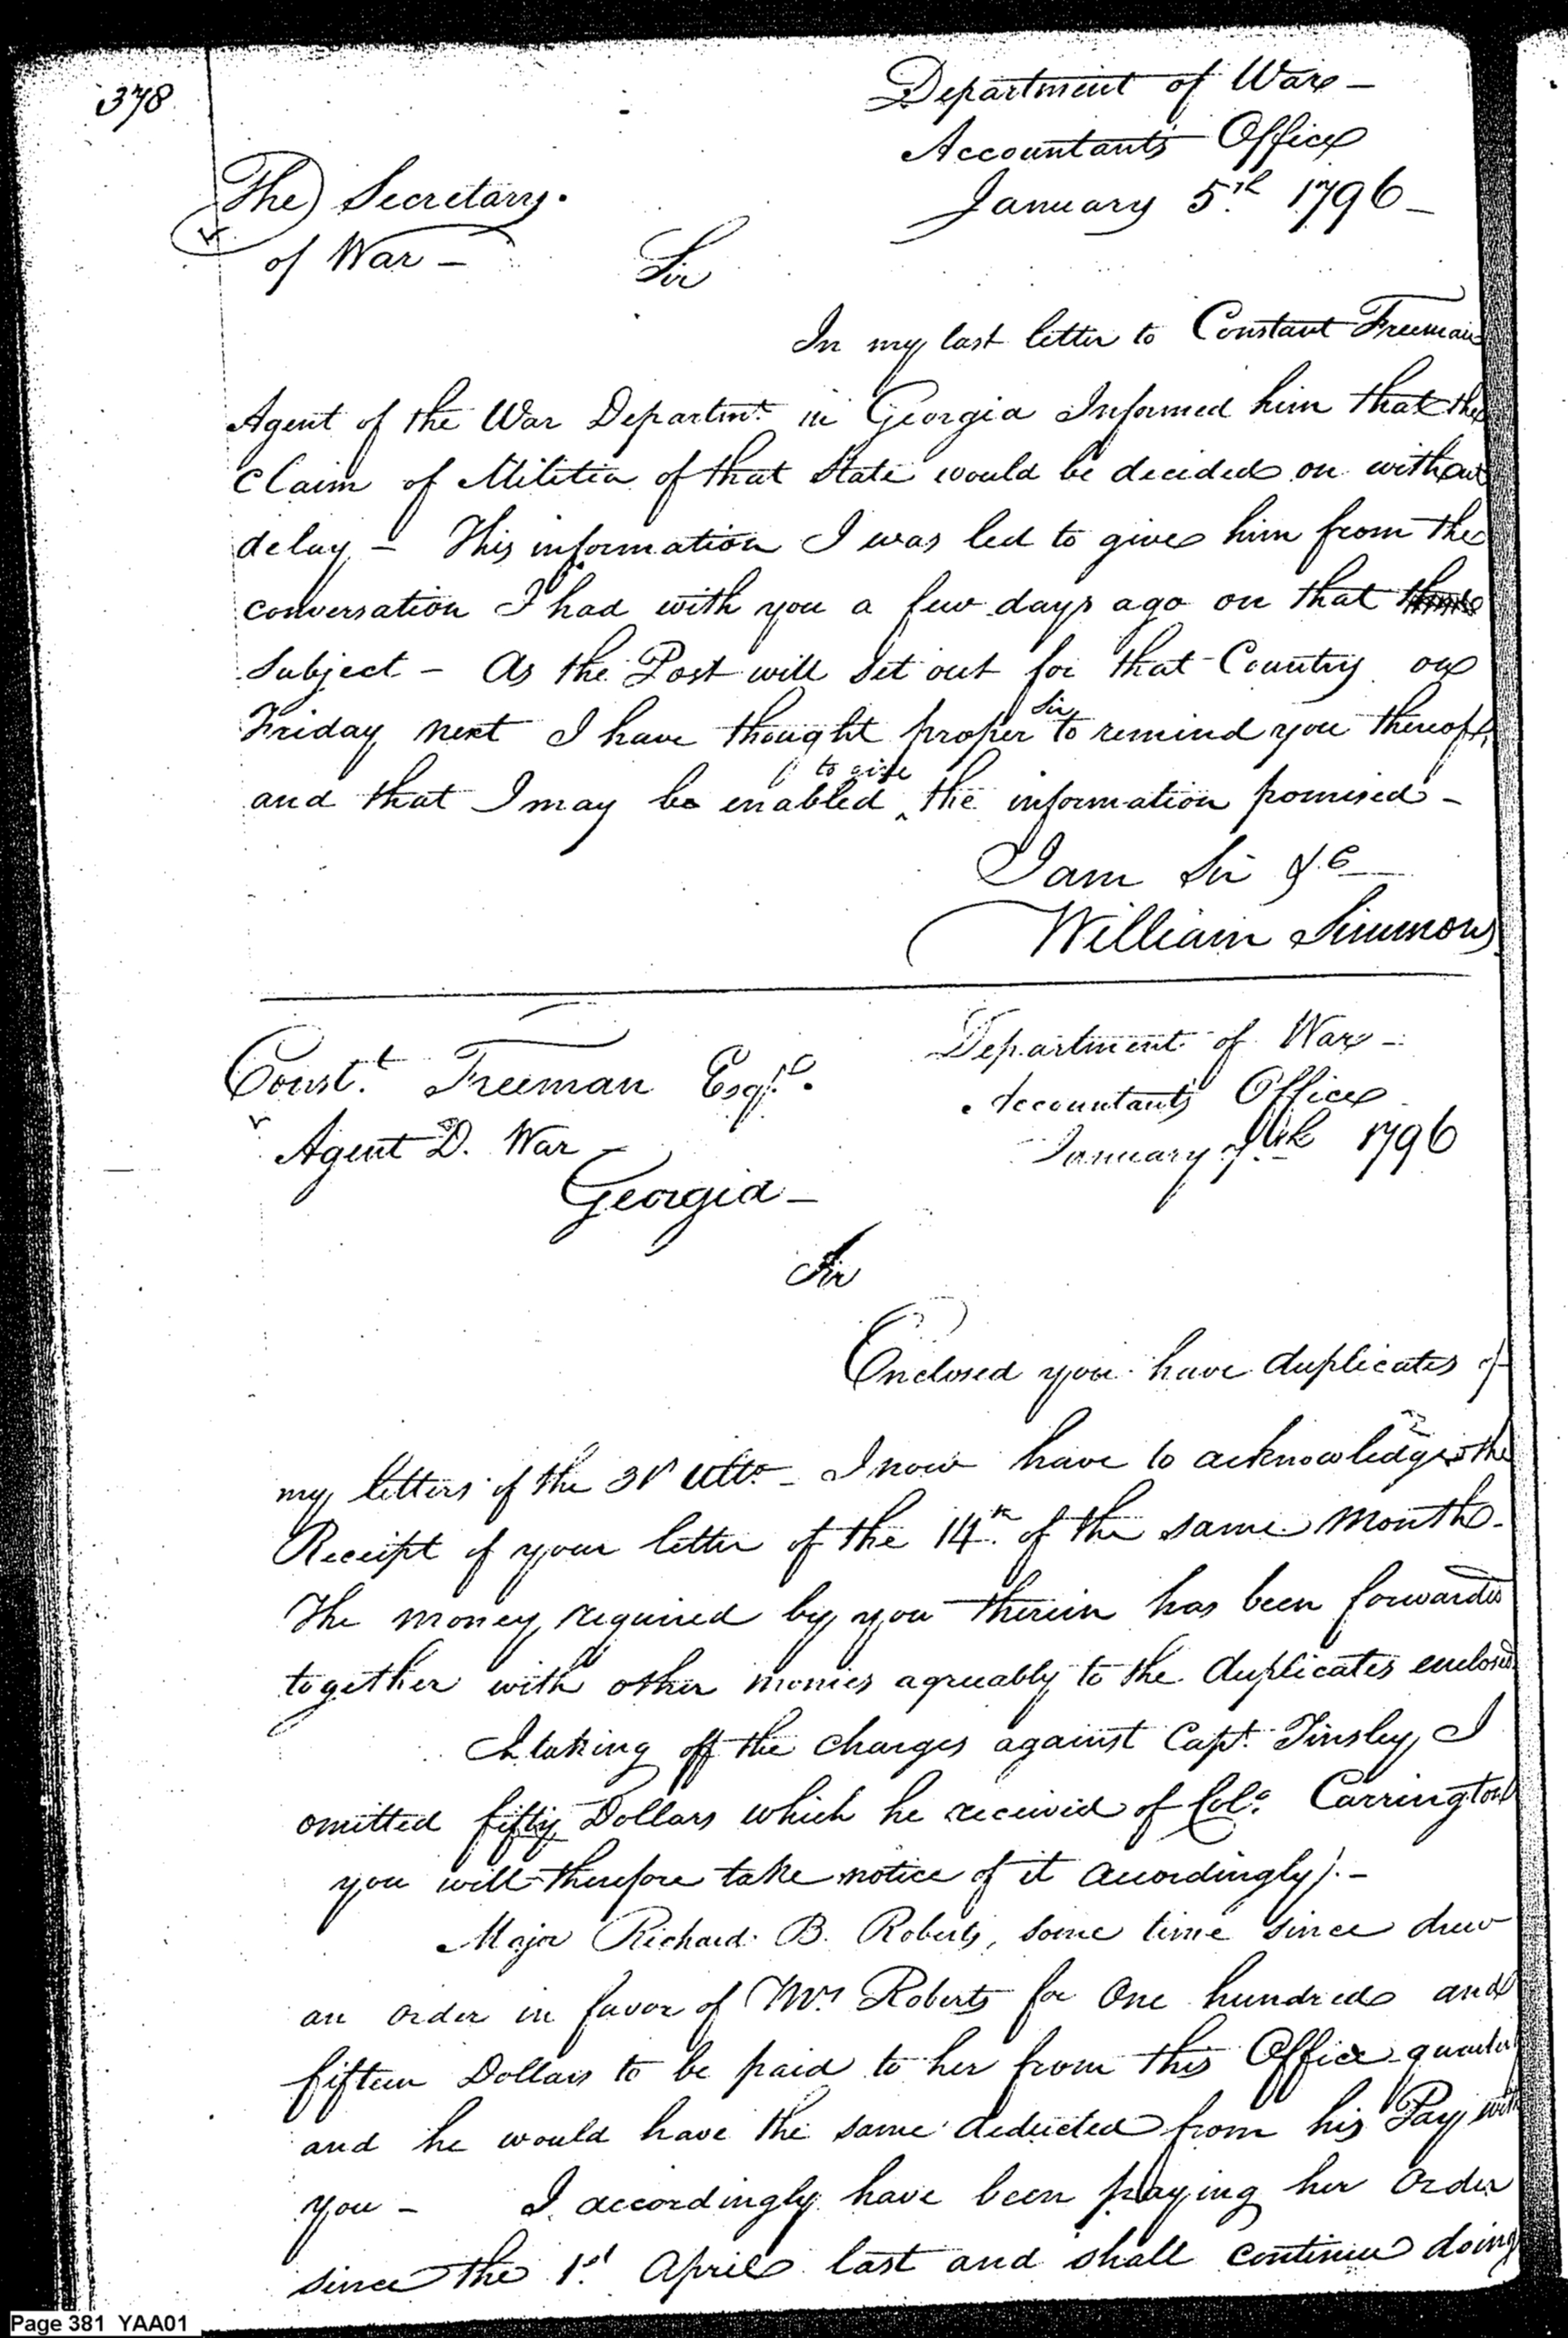 378
Department of War -
Accountants Office
January 5th 1796 -
The Secretary
of War -
Sir
In my last letter to Constant Freeman
Agent of the War Departmt. in Georgia Informed him that the
Claim of Militia of that State would be decided on without
delay - This information I was led to give him from the
conversation I had with you a few days ago on that
Subject - As the Post will set out for that Country on
Friday next I have thought proper Sir to remind you thereof,
and that I may be enabled to give the information promised -
I am Sir &c
William Simmons
Const. Freeman Esqr.
Agent D. War -
Georgia -
Department of War -
Accountants Office
January 7th 1796
Sir
Enclosed you have duplicates of
my letters of the 31st Ulto. - I now have to acknowledge the
Receipt of your letter of the 14th of the same Month -
The money required by you therein has been forwarded
together with other monies agreeably to the duplicates enclosed
In taking off the charges against Capt. Tinsley, I
omitted fifty Dollars which he received of Colo. Carrington
you will therefore take notice of it accordingly. -
Major Richard B. Roberts, some time since drew
an order in favor of Mrs Roberts for One hundred and
fifteen Dollars to be paid to her from this Office quarterly
and he would have the same deducted from his Pay with
you - I accordingly have been paying her Order
since the 1st April last and shall continue doing
Page 381 YAA01